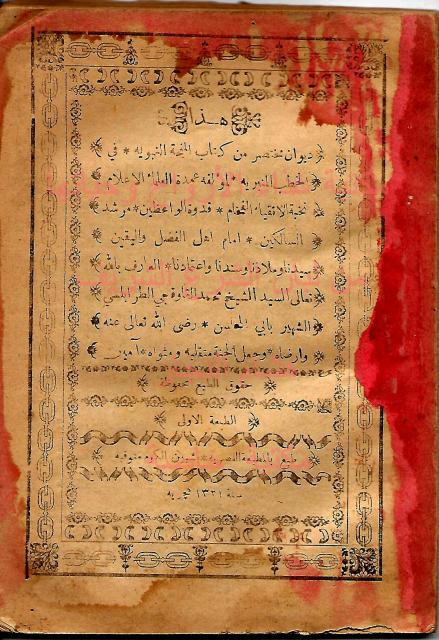 هذا
ديوان مختصر من كتاب المنحة النبويه * في
الخطب المنبريه * لمؤلفه عمدة العلماء الاعلام
نخبة الاتقياء الفخام * قدوة الواعظين * مرشد
السالكين * امام اهل الفضل واليقين
سيدنا وملاذنا وسندنا واعتمادنا * العارف بالله
تعالى السيد الشيخ محمد القاوقجي الطرابلسي
الشهير بابي المحاسن * رضى الله تعالى عنه
وارضاه * وجعل الجنة منقلبه ومثواه * آمين
حقوق الطبع محفوظة
الطبعة الاولى
طبع بالمطبعة * بشبين الكوم منوفيه
سنة ١٣٢١ هجريه